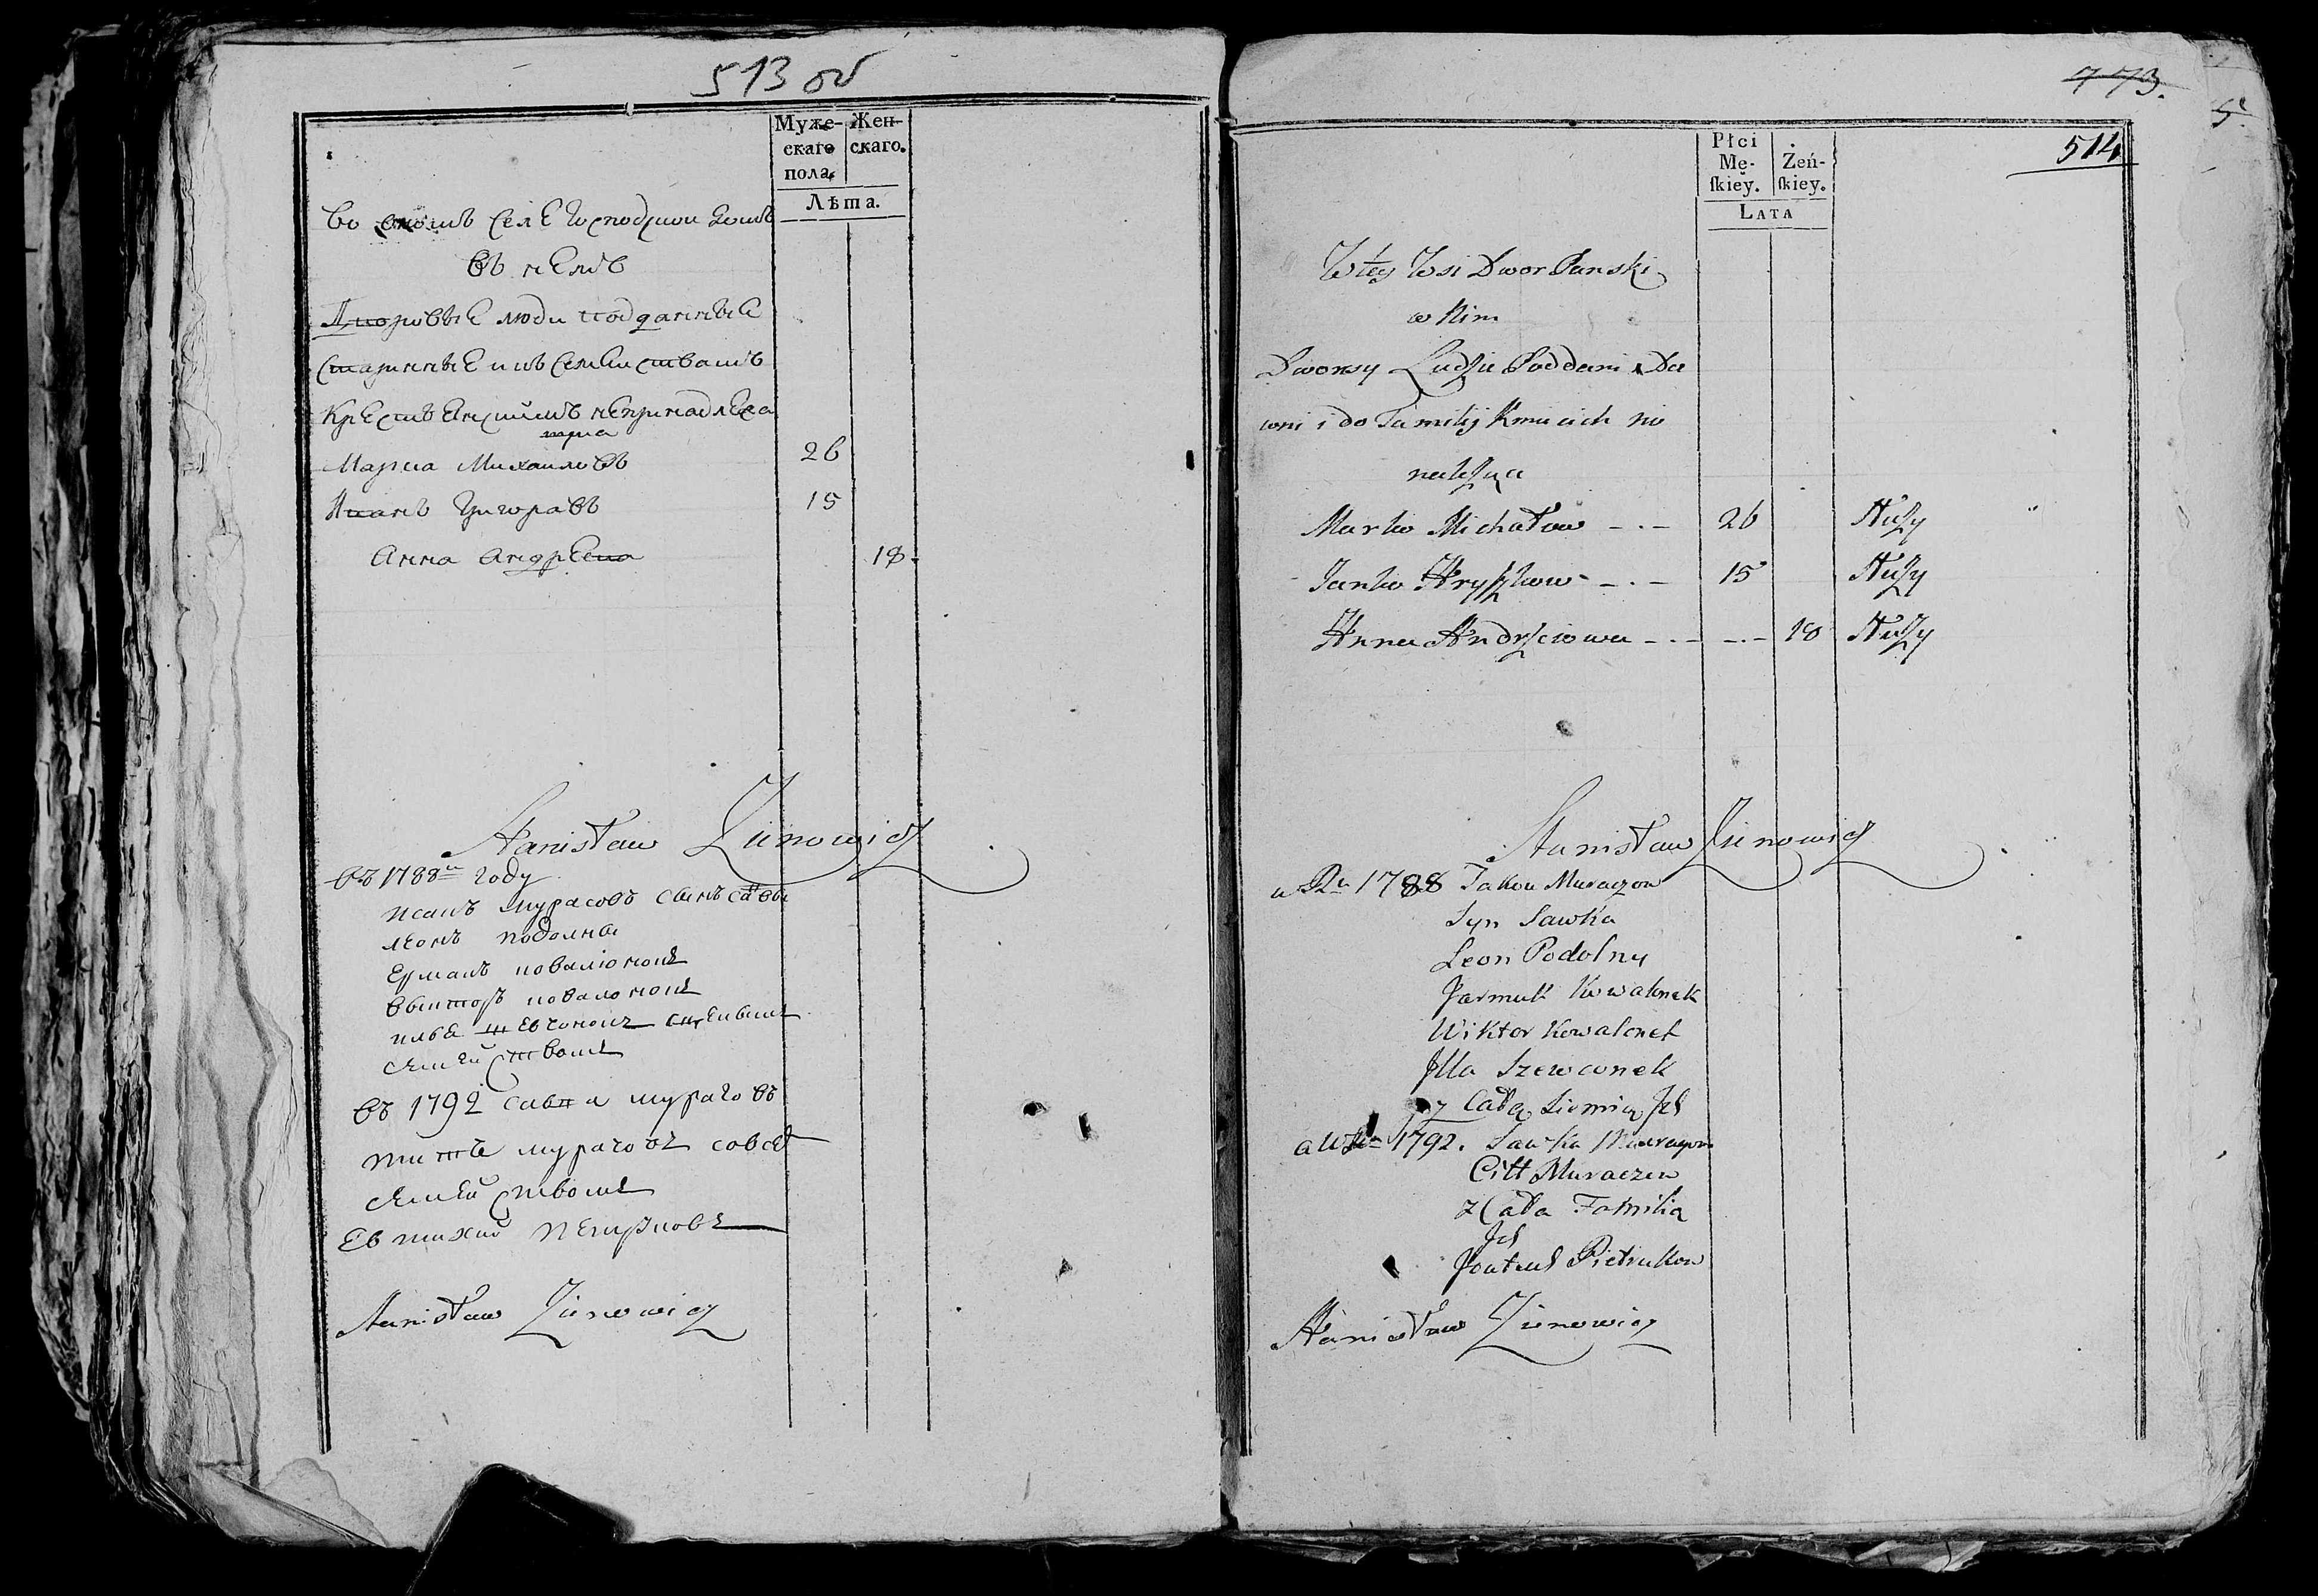 513 об
Муже-
скаго
пола.
Жен-
скаго.
Лѣта.
Во ономъ селе господскои домъ
въ немъ
Дворовые люди подданные
старинные и къ семействамъ
крестьянскимъ непринадлежа
щиа
Марко Михаиловъ 26
Янко Григоравъ 15
Анна Андреева 18
Stanisław Zienowicz
въ 1788м году
Исакъ Мурасовъ сынъ
леонъ подолны
Ермакъ
Виктор
семействомъ
въ 1792 савка мурачовъ
титъ мурачовъ совсемъ
семействомъ
Евтихий Петруковъ
Stanisław Zienowicz
773.
514
Płci
Mę-
ſkiey.
Żeń-
ſkiey.
LATA
W tey Wsi Dwor Panski
w Nim
Dworscy Ludzie Poddani i Da
wni i do Familij Kmiecich nie
należące
Marko Michałow - . - 26
Janko Hryszkow - . - 15
Anna Andrzeiowa - . - - . - 18
Stanisław Zienowicz
w Ru 1788 Jakow Muraczow
Syn Sawka
Leon Podolny
Jarmak Kowalonek
Wiktor Kowalonek
Jlla Szewconek
z Cała Ziemią Jch
a w Ru 1792. Sawka Muraczow
Citt Muraczew
z Cała Familia
Jch
Pietrukow
Stanisław Zienowicz